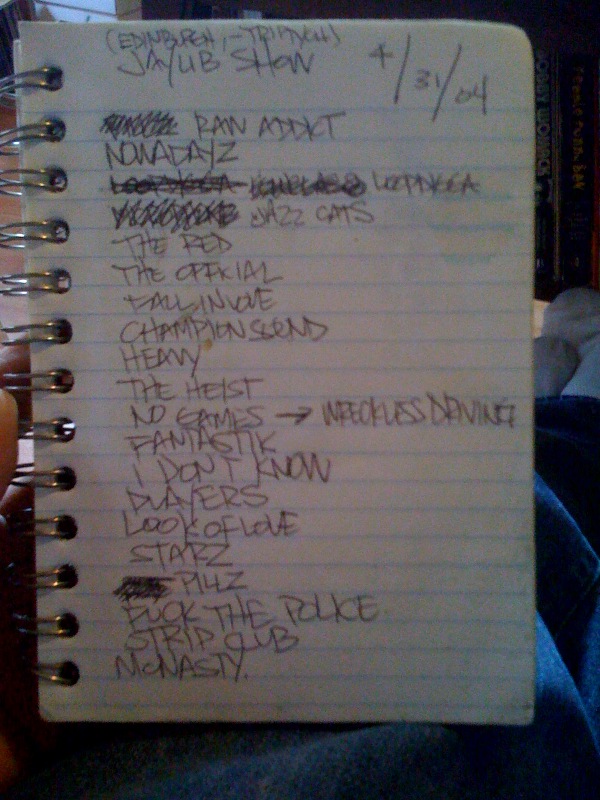 (EDINBURGH, - TRIPTYCH)
JAYLIB SHOW 4/31/04
RAW ADDICT
NOWADAYZ
LOOPDIGGA
JAZZ CATS
THE RED
THE OFFICIAL
FALL IN LOVE
CHAMPION SOUND
HEAVY
THE HEIST
NO GAMES → WRECKLESS DRIVING
FANTASTIK
I DON'T KNOW
PLAYERS
LOOK OF LOVE
STARZ
PILLZ
FUCK THE POLICE
STRIP CLUB
MCNASTY.